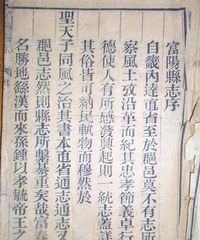 富陽縣志序
自畿內達直省至於郡邑莫不有志所
察風土攷沿革而紀其忠孝節義卓行
德使人有所感發興起則一統志蓋詳
其俗皆可納民軌物而穆然於
聖天子同風之治其書本直省通志通志又
郡邑志然則縣志所繫綦重矣故富春
名勝地緜漢而來孫鍾以孝毓帝王之